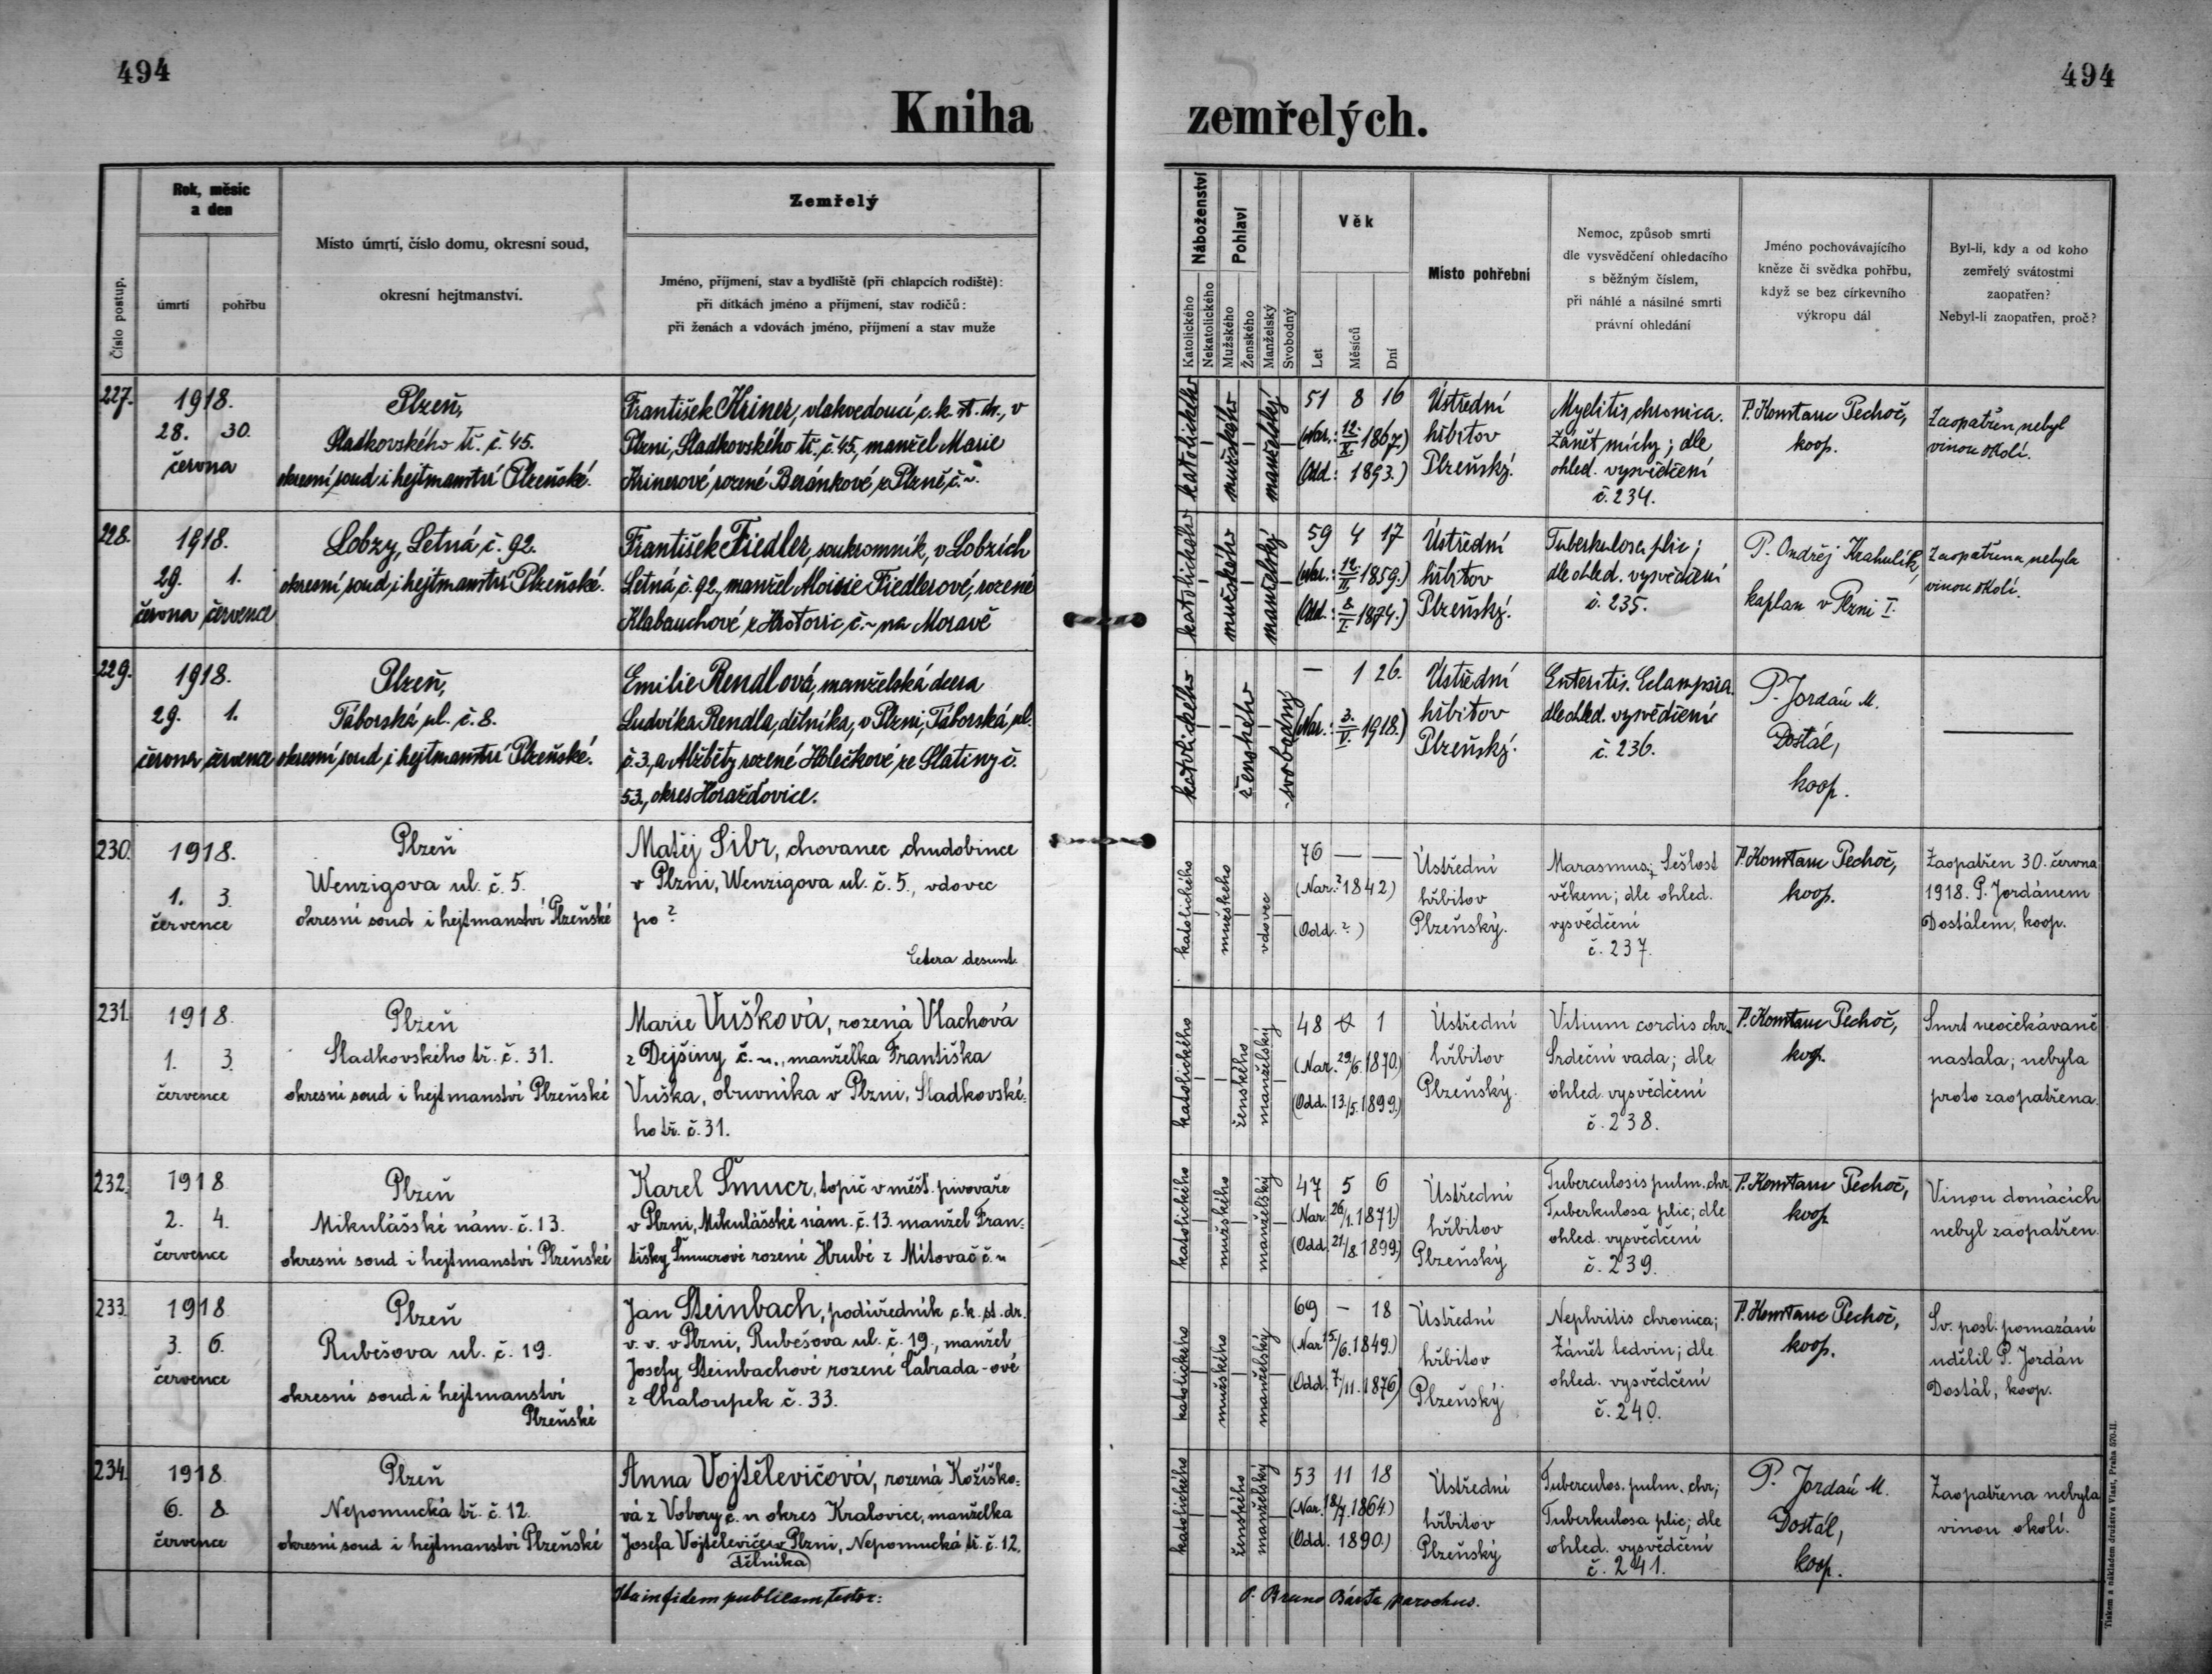 494
494
Kniha zemřelých.
Číslo postup.
Rok, měsíc
a den
úmrtí
pohřbu
Místo úmrtí, číslo domu, okresní soud,
okresní hejtmanství.
Zemřelý
Jméno, příjmení, stav a bydliště (při chlapcích rodiště):
při dítkách jméno a příjmení, stav rodičů:
při ženách a vdovách jméno, příjmení a stav muže
Náboženství
Katolického
Nekatolického
Pohlaví
Mužského
Ženského
Manželský
Svobodný
Věk
Let
Měsíců
Dní
Místo pohřební
Nemoc, způsob smrti
dle vysvědčení ohledacího
s běžným číslem,
při náhlé a násilné smrti
právní ohledání
Jméno pochovávajícího
kněze či svědka pohřbu,
když se bez církevního
výkropu dál
Byl-li, kdy a od koho
zemřelý svátostmi
zaopatřen?
Nebyl-li zaopatřen, proč?
227.
1918.
28. 30.
června
Plzeň,
Sladkovského tř. č. 45.
okresní soud i hejtmanství Plzeňské.
František Kriner, vlakvedoucí c. k. st. dr., v
Plzni, Sladkovského tř. č. 45, manžel Marie
Krinerové rozené Beránkové z Plzně, č. ~
katolického
mužského
manželský
51 8 16
(Nar.: 12./X. 1867.)
(Odd.: 1893.)
Ústřední
hřbitov
Plzeňský.
Myelitis chronica.
Zánět míchy; dle
ohled. vysvědčení
č. 234.
P. Konstanc Pechoč,
koop.
Zaopatřen nebyl
vinou okolí.
228.
1918.
29. 1.
června července
Lobzy, Letná č. 92.
okresní soud i hejtmanství Plzeňské.
František Fiedler, soukromník, v Lobzích
Letná, č. 92, manžel Aloisie Fiedlerové, rozené
Klabauchové z Hrotovic, č. ~ na Moravě
katolického
mužského
manželský
59 4 17
(Nar.: 12./II. 1859.)
(Odd.: 8./I. 1894.)
Ústřední
hřbitov
Plzeňský.
Tuberkulosa plic;
dle ohled. vysvědčení
č. 235.
P. Ondřej
kaplan v Plzni I.
Zaopatřena nebyla
vinou okolí.
229.
1918.
29. 1.
června července
Plzeň,
Táborská ul. č. 8.
okresní soud i hejtmanství Plzeňské.
Emilie Rendlová, manželská dcera
Ludvíka Rendla, dělníka, v Plzni, Táborská ul.
č. 3, a Alžběty rozené Holečkové ze Slatiny č.
53., okres Horažďovice.
katolického
ženského
svobodný
— 1 26.
(Nar.: 3./V. 1918.)
Ústřední
hřbitov
Plzeňský.
Enteritis. Eclampsia.
dle ohled. vysvědčení
č. 236.
P. Jordán M.
Dostál,
koop.
230.
1918.
1. 3.
července
Plzeň
Wenzigova ul. č. 5.
okresní soud i hejtmanství Plzeňské
Matěj Sibr, chovanec chudobince
v Plzni, Wenzigova ul. č. 5., vdovec
po ?
Cetera desunt.
katolického
mužského
vdovec
76 — —
(Nar. ? 1842)
(Odd. ?)
Ústřední
hřbitov
Plzeňský.
Marasmus; Sešlost
věkem; dle ohled.
vysvědčení
č. 237.
P. Konstanc Pechoč,
koop.
Zaopatřen 30. června
1918. P. Jordánem
Dostálem, koop.
231.
1918.
1. 3.
července
Plzeň
Sladkovského tř. č. 31.
okresní soud i hejtmanství Plzeňské
Marie Vušková, rozená Vlachová
z Dejšiny č. ~., manželka Františka
Vuška, obuvníka v Plzni, Sladkovské-
ho tř. č. 31.
katolického
ženského
manželský
48 1
(Nar. 29/6. 1870.)
(Odd. 13./5. 1899.)
Ústřední
hřbitov
Plzeňský.
Vitium cordis chr.
Srdeční vada; dle
ohled. vysvědčení
č. 238.
P. Konstanc Pechoč,
koop.
Smrt neočekávaně
nastala; nebyla
proto zaopatřena.
232.
1918
2. 4.
července
Plzeň
Mikulášské nám. č. 13.
okresní soud i hejtmanství Plzeňské
Karel Šmucr, topič v měšt. pivovaře
v Plzni, Mikulášské nám. č. 13. manžel Fran-
tišky Šmucrové rozené Hrubé z Mítovač č. ~
katolického
mužského
manželský
47 5 6
(Nar. 26/1. 1871.)
(Odd. 21/8. 1899.)
Ústřední
hřbitov
Plzeňský
Tuberculosis pulm. chr.
Tuberkulosa plic; dle
ohled. vysvědčení
č. 239.
P. Konstanc Pechoč,
koop.
Vinou domácích
nebyl zaopatřen.
233.
1918
3. 6.
července
Plzeň
Rubešova ul. č. 19.
okresní soud i hejtmanství
Plzeňské
Jan Steinbach, podúředník c. k. st. dr.
v. v. v Plzni, Rubešova ul. č. 19., manžel
Josefy Steinbachové rozené Cabrada-ové
z Chaloupek č. 33.
katolického
mužského
manželský
69 — 18
(Nar. 15./6. 1849.)
(Odd. 7/11. 1876)
Ústřední
hřbitov
Plzeňský
Nephritis chronica;
Zánět ledvin; dle
ohled. vysvědčení
č. 240.
P. Konstanc Pechoč,
koop.
Sv. posl. pomazání
udělil P. Jordán
Dostál, koop.
234.
1918.
6. 8.
července
Plzeň
Nepomucká tř. č. 12.
okresní soud i hejtmanství Plzeňské
Anna Vojtělevičová, rozená Kožíško-
vá z Vobory č. ~ okres Kralovice, manželka
Josefa Vojtěleviče v Plzni, Nepomucká tř. č. 12.
dělníka
katolického
ženského
manželský
53 11 18
(Nar. 18/7. 1864.)
(Odd. 1890.)
Ústřední
hřbitov
Plzeňský
Tuberculos. pulm. chr.;
Tuberkulosa plic; dle
ohled. vysvědčení
č. 241.
P. Jordán M.
Dostál,
koop.
Zaopatřena nebyla
vinou okolí.
Ita in fidem publicam testor:
P. Bruno Bárta parochus.
Tiskem a nákladem družstva Vlast, Praha 570-II.